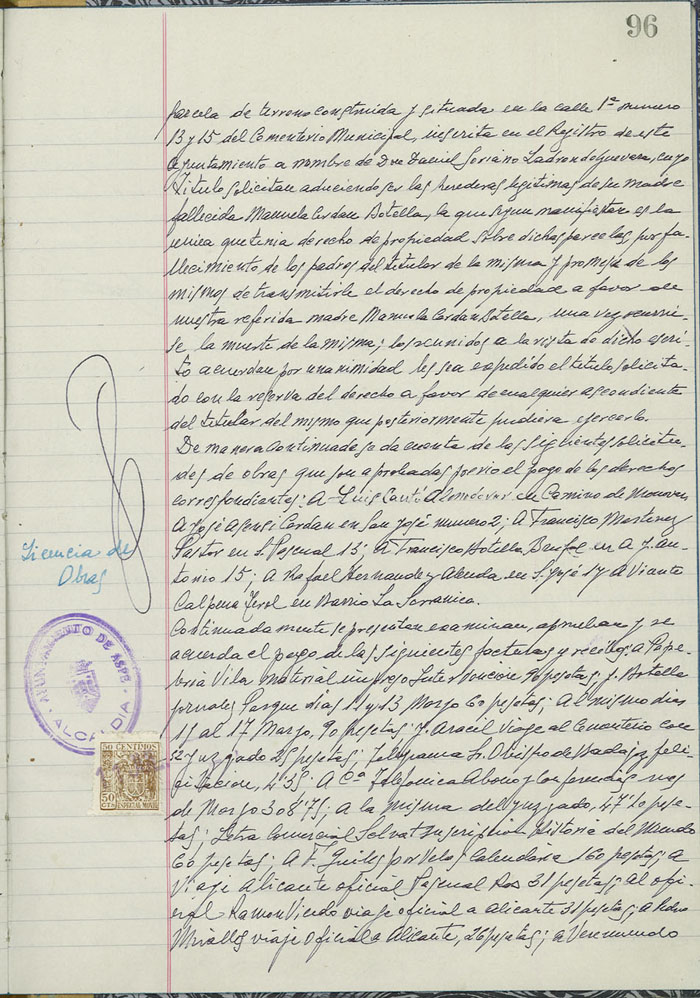 96
Parcela de terreno construida y situada en la calle 1ª numero
13 y 15 del Cementerio Municipal, inscrita en el Registro de este
Ayuntamiento a nombre de Don Daniel Soriano Ladron de Guevara, cuyo
Titulo solicitan aduciendo ser las herederas legitimas de su madre
fallecida Manuela Cerdan Botella, la que segun manifiestan es la
unica que tenia derecho de propiedad sobre dichas parcelas por fa-
llecimiento de los padres del titular de la misma y promesa de los
mismos de transmitirle el derecho de propiedad a favor de
nuestra referida madre Manuela Cerdan Botella, una vez ocurrie-
se la muerte de la misma; los reunidos a la vista de dicho escri-
to acuerdan por unanimidad les sea expedido el titulo solicita-
do con la reserva del derecho a favor de cualquier ascendiente
del titular del mismo que posteriormente pudiera ejercerlo.
De manera continuada se da cuenta de las siguientes solicitu-
des de obras que son aprobadas previo el pago de los derechos
correspondientes: A Luis Cantó Almodovar en Camino de
A José Asensi Cerdan en San José numero 2; A Francisco Martinez
Pastor en S. Pascual 13; A Francisco Botella en A J. An-
tonio 15; A Rafael Hernandez en S. José 17 A Vicente
Calpena en Barrio La Serranica.
Continuadamente se presentan examinan, aprueban y se
acuerda el pago de las siguientes facturas y recibos: a Pape-
leria Vila material impreso Intervencion pesetas, J. Botella
jornales Parque dias 11 y 13 Marzo 60 pesetas; Al mismo dias
15 al 17 Marzo, 90 pesetas; J. Aracil viaje al Cementerio con
Juzgado 25 pesetas; Telegrama Sr. Obispo de Badajoz feli-
citacion, 4'35; A Cª Telefonica Abono y Conferencias
de Marzo 308'75; A la misma del Juzgado, 47'10 pese-
tas; Letra Comercial Salvat suscripcion Historia del Mundo
60 pesetas; A F. Guiles por Velas Calendaria 160 pesetas; a
Viaje Alicante oficial Pascual Ros 31 pesetas; Al ofi-
cial Ramon viaje oficial a Alicante 31 pesetas; a Pedro
Miralles viaje oficial a Alicante, 26 pesetas; a Veremundo
Licencia de
Obras
AYUNTAMIENTO DE ASPE
ALCALDIA
50 CENTIMOS
50 CTS
ESPECIAL MOVIL